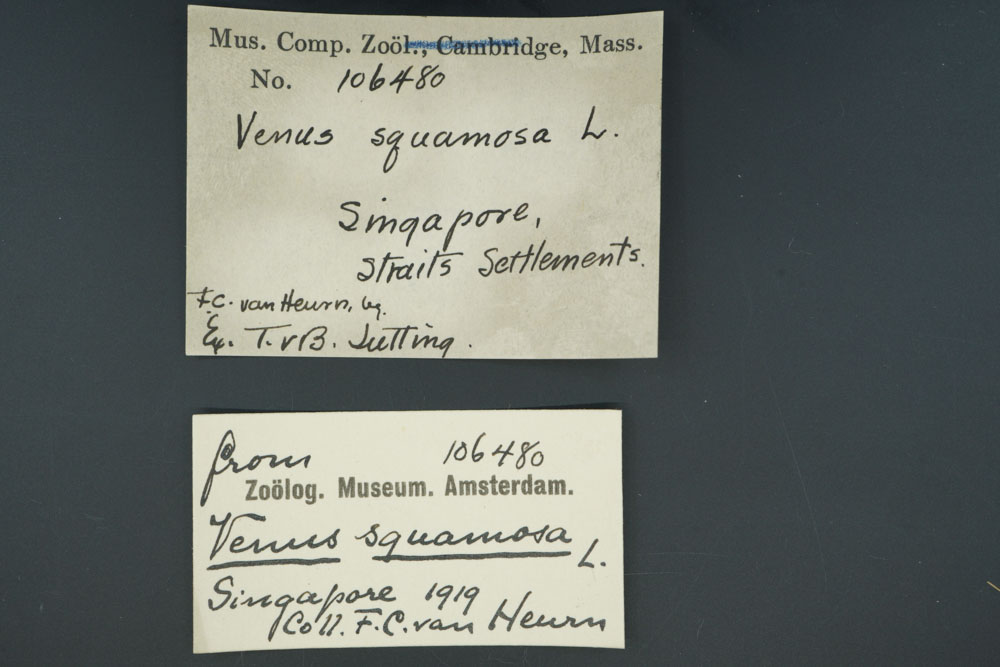 Mus. Comp. Zoöl., Cambridge, Mass.
No. 106480
Venus squamosa L.
Singapore,
Straits Settlements.
F.C. van Heurn, leg.
Ex. T. v B. Jutting.
from 106480
Zoölog. Museum. Amsterdam.
Venus squamosa L.
Singapore 1919
Coll. F.C. van Heurn